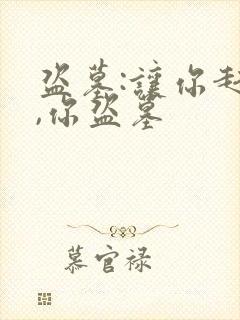 盗墓:讓你
,你盗墓
慕官禄